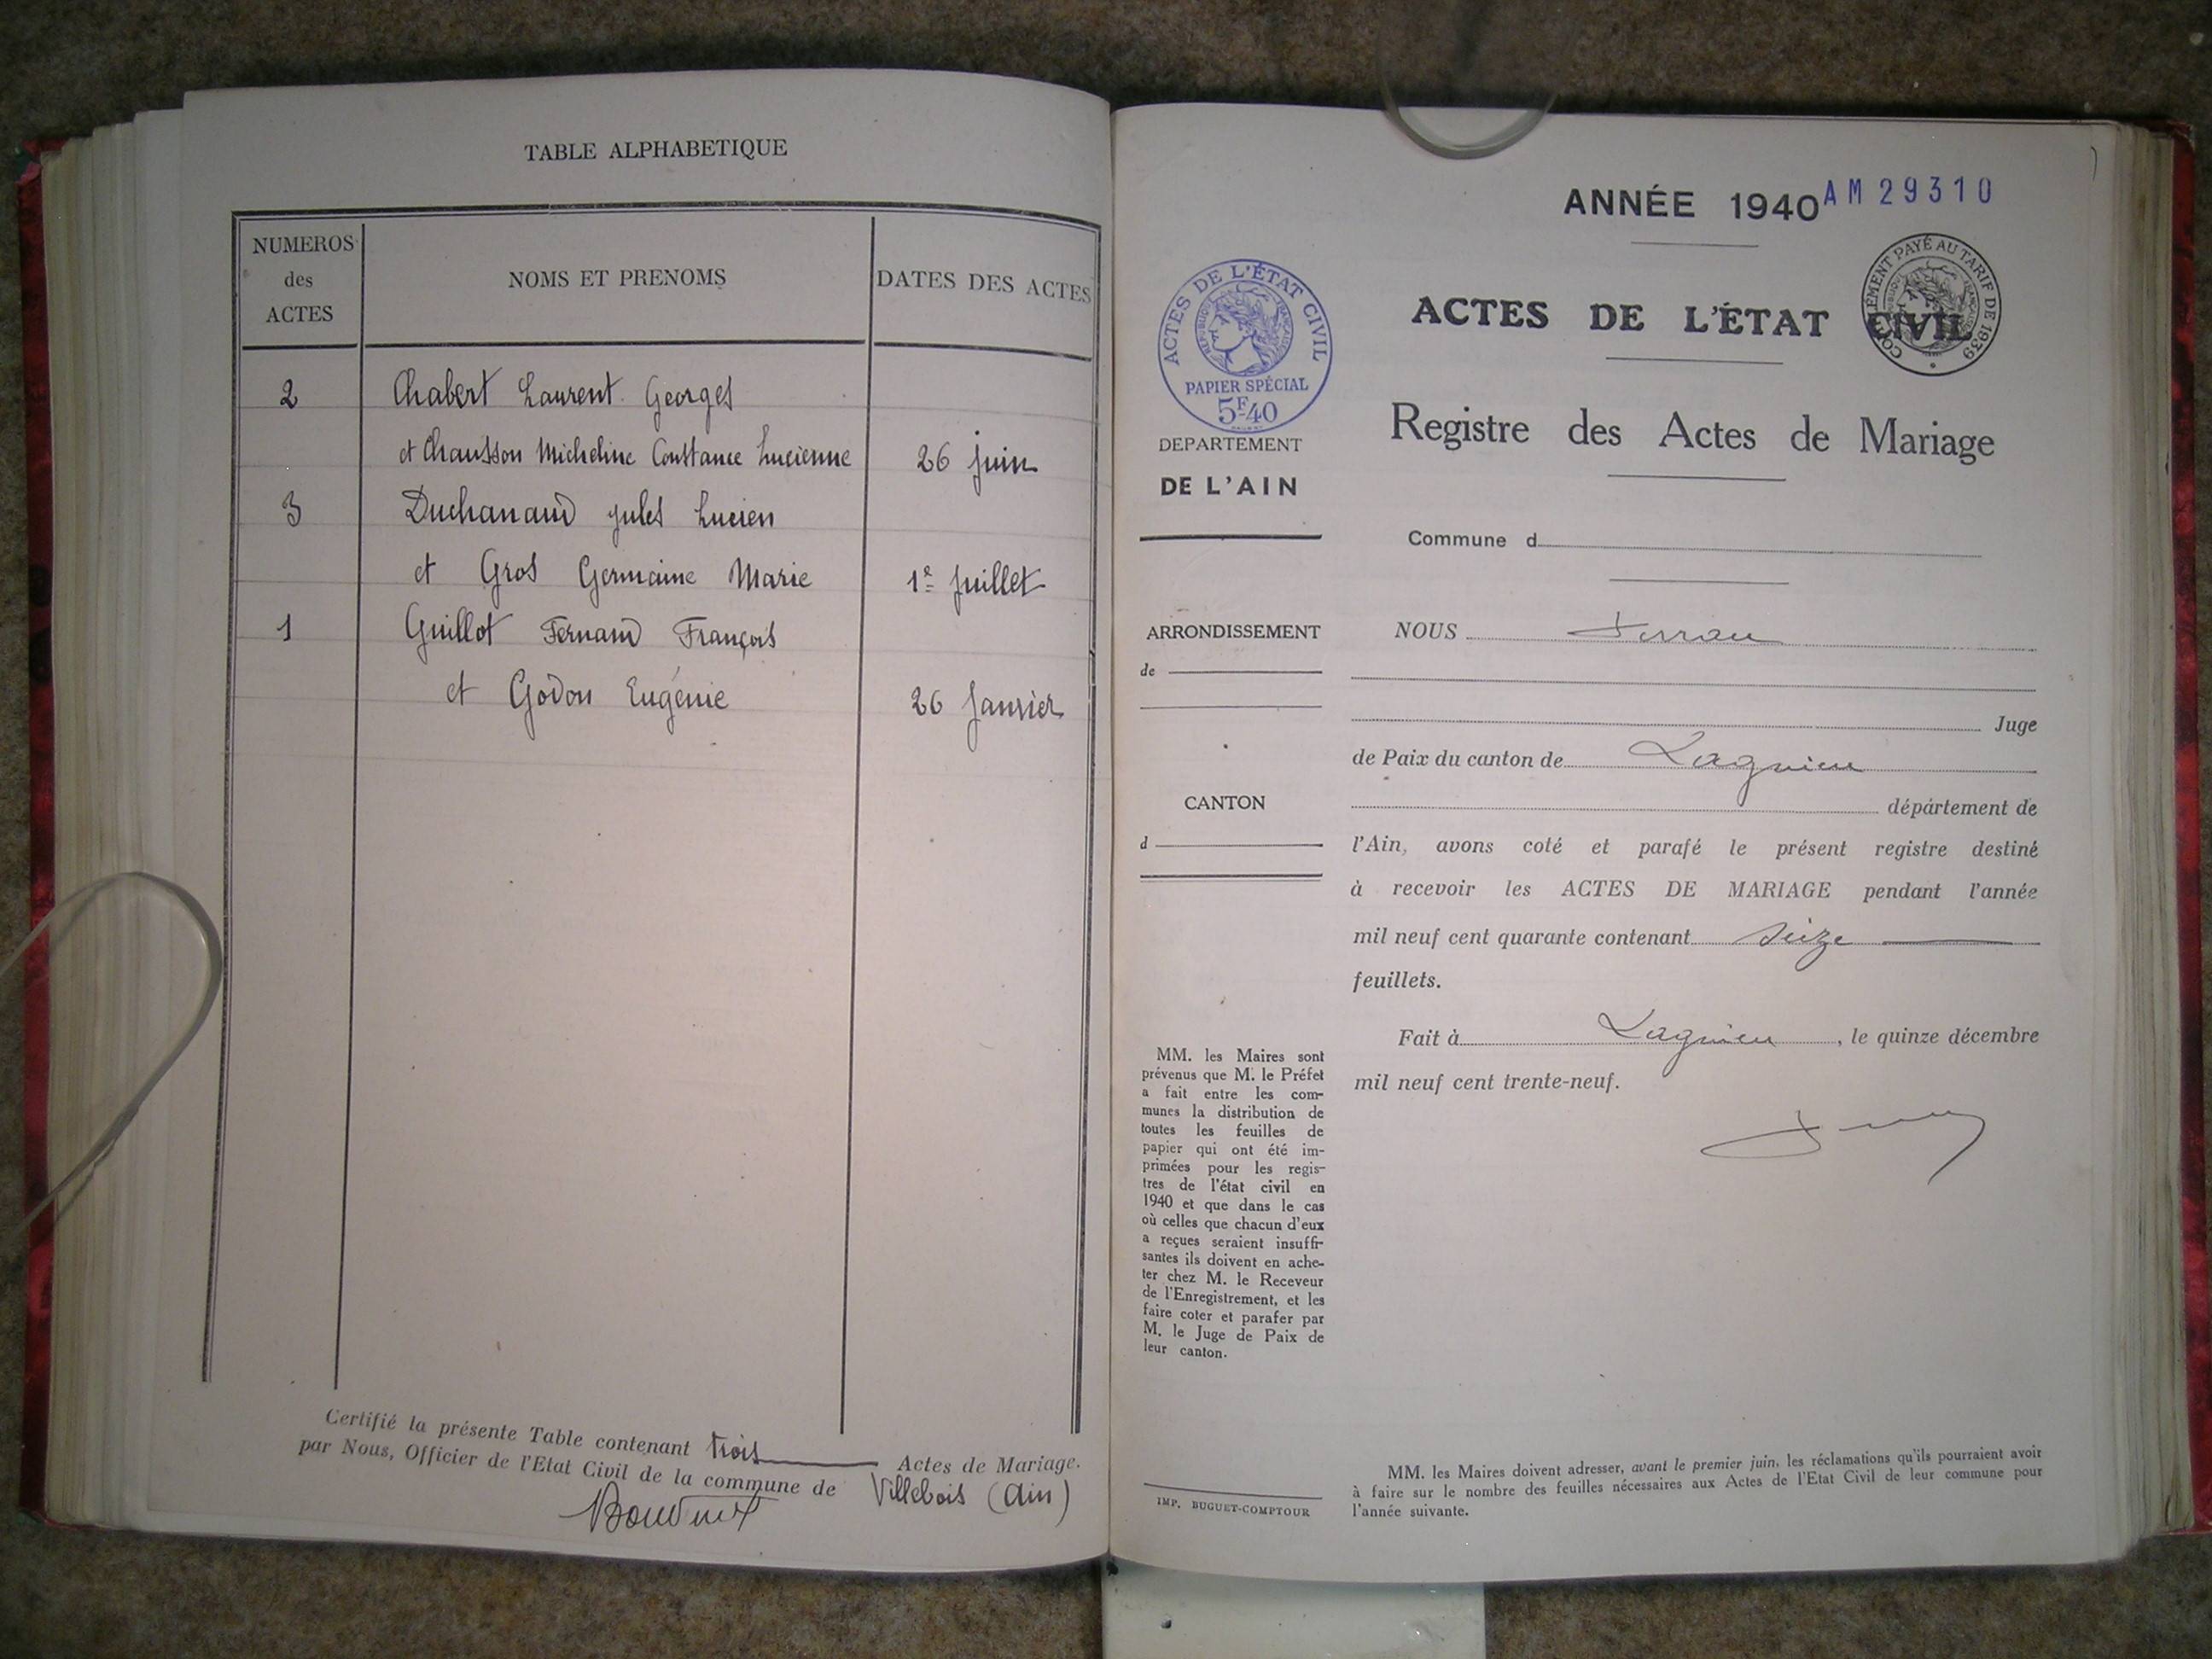 TABLE ALPHABETIQUE
NUMEROS des ACTES
NOMS ET PRENOMS
DATES DES ACTES
2 Chabert Laurent Georges
et Chausson Micheline Constance Lucienne 26 juin
3 Duchanaud Jules Lucien
et Gros Germaine Marie 1er juillet
1 Guillot Fernand François
et Godon Eugénie 26 Janvier
Certifié la présente Table contenant trois Actes de Mariage.
par Nous, Officier de l'Etat Civil de la commune de Villebois (Ain)
ANNÉE 1940 AM 29310
ACTES DE L'ÉTAT CIVIL
RÉPUBLIQUE FRANÇAISE
PAPIER SPÉCIAL
5F40
COMPLÉMENT PAYÉ AU TARIF DE 1939
ACTES DE L'ÉTAT CIVIL
Registre des Actes de Mariage
DEPARTEMENT
DE L'AIN
Commune d
ARRONDISSEMENT
de
CANTON
d
NOUS
Juge
de Paix du canton de Lagnieu
département de
l'Ain, avons coté et parafé le présent registre destiné
à recevoir les ACTES DE MARIAGE pendant l'année
mil neuf cent quarante contenant seize
feuillets.
Fait à Lagnieu, le quinze décembre
mil neuf cent trente-neuf.
MM. les Maires sont
prévenus que M. le Préfet
a fait entre les com-
munes la distribution de
toutes les feuilles de
papier qui ont été im-
primées pour les regis-
tres de l'état civil en
1940 et que dans le cas
où celles que chacun d'eux
a reçues seraient insuffi-
santes ils doivent en ache-
ter chez M. le Receveur
de l'Enregistrement, et les
faire coter et parafer par
M. le Juge de Paix de
leur canton.
IMP. BUGUET-COMPTOUR
MM. les Maires doivent adresser, avant le premier juin, les réclamations qu'ils pourraient avoir
à faire sur le nombre des feuilles nécessaires aux Actes de l'Etat Civil de leur commune pour
l'année suivante.